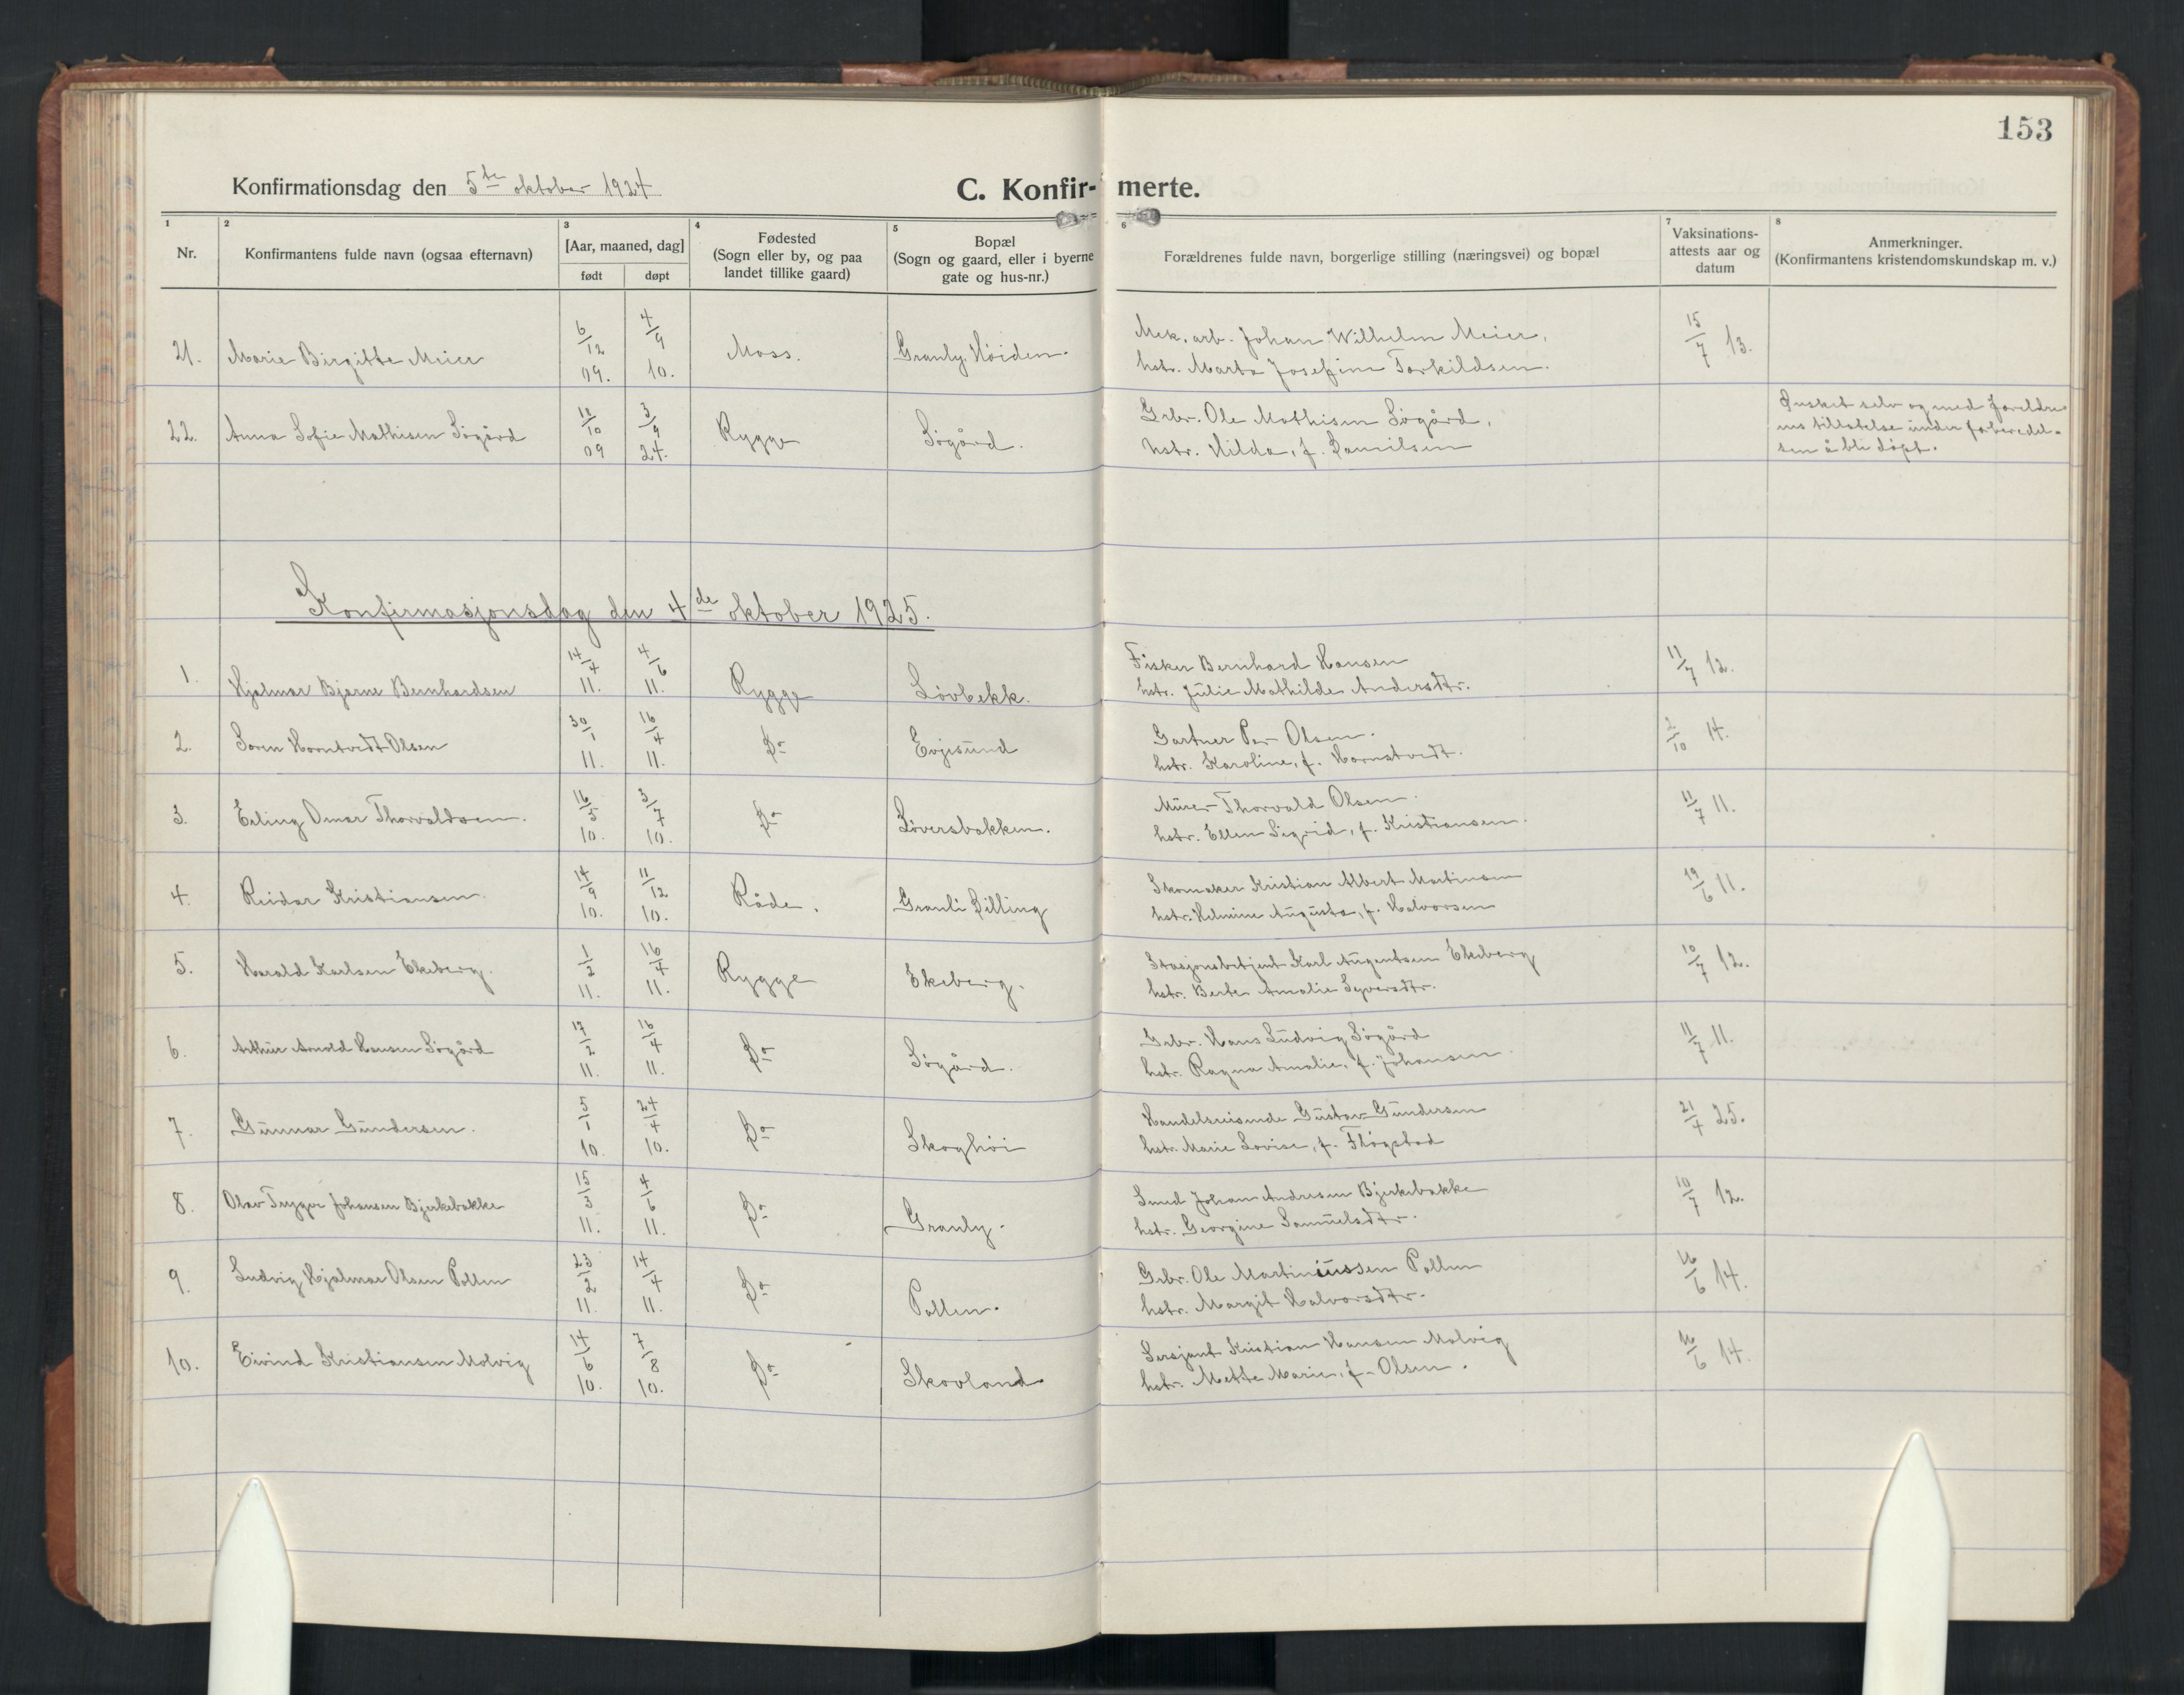 153
Konfirmationsdag den 5te oktober 1924
C. Konfir- merte.
1 2 3 4 5 6 7 8
Nr. Konfirmantens fulde navn (ogsaa efternavn) [Aar, maaned, dag] født døpt Fødested (Sogn eller by, og paa landet tillike gaard) Bopæl (Sogn og gaard, eller i byerne gate og hus-nr.) Forældrenes fulde navn, borgerlige stilling (næringsvei) og bopæl Vaksinations-attests aar og datum Anmerkninger. (Konfirmantens kristendomskundskap m. v.)
21. Marie Birgitte Meier 6/12 09. 4/9 10. Moss. Granly, Höiden. Mek. arb. Johan Wilhelm Meier, 15/7 13.
hstr. Marta Josefine Torkildsen.
22. Anna Sofie Mathisen Sögård 10/10 09 3/9 24. Rygge Sögård. Grbr. Ole Mathisen Sögård,
hstr. Hilda, f. Danilsen
Ønsket selv og med foreldre-
nes tillatelse under forberedel-
sen å bli döpt.
Konfirmasjonsdag den 4de oktober 1925.
1. Hjalmar Bjarne Bernhardsen 14/4 11. 4/6 11. Rygge Lövbekk. Fisker Bernhard Hansen 11/7 12.
hstr. Julie Mathilde Andersdtr.
2. Soren Horntvedt Olsen 30/1 11. 16/4 11. Do Evjesund Gartner Per Olsen. 2/10 14.
hstr. Karoline, f. Horntvedt.
3. Erling Omar Thorvaldsen. 16/5 10. 3/7 10. Do Löversbakken. Murer Thorvald Olsen. 11/7 11.
hstr. Ellen Sigrid, f. Kristiansen.
4. Reidar Kristiansen. 14/9 10. 11/12 10. Råde. Granli Dilling Skomaker Kristian Albert Martinsen 19/6 11.
hstr. Helmine Augusta, f. Halvorsen
5. Harald Karlsen Ekeberg. 1/2 11. 16/4 11. Rygge Ekeberg. Stasjonsbetjent Karl Augentsen Ekeberg 10/7 12.
hstr. Berte Amalie Syversdtr.
6. Arthur Arnold Hansen Sögård 17/2 11. 16/4 11. Do Sögård. Grbr. Hans Ludvig Sögård 11/7 11.
hstr. Ragna Amalie, f. Johansen.
7. Gunnar Gundersen. 5/1 10. 24/4 10. Do Skoghöi Handelsreisende Gustav Gundersen 21/4 25.
hstr. Marie Lovise, f. Flögstad
8. Olav Trygve Johansen Bjerkebakke 15/3 11. 4/6 11. Do Granly. Smed Johan Andresen Bjerkebakke 10/7 12.
hstr. Georgine Samuelsdtr.
9. Ludvig Hjalmar Olsen Pollen 23/2 11. 14/4 11. Do Pollen. Grbr. Ole Martiniussen Pollen 16/6 14.
hstr. Margit Halvorsdtr.
10. Eivind Kristiansen Molvig 14/6 10. 7/8 10. Do Skovland Sersjant Kristian Hansen Molvig 16/6 14.
hstr. Mette Marie, f. Olsen.